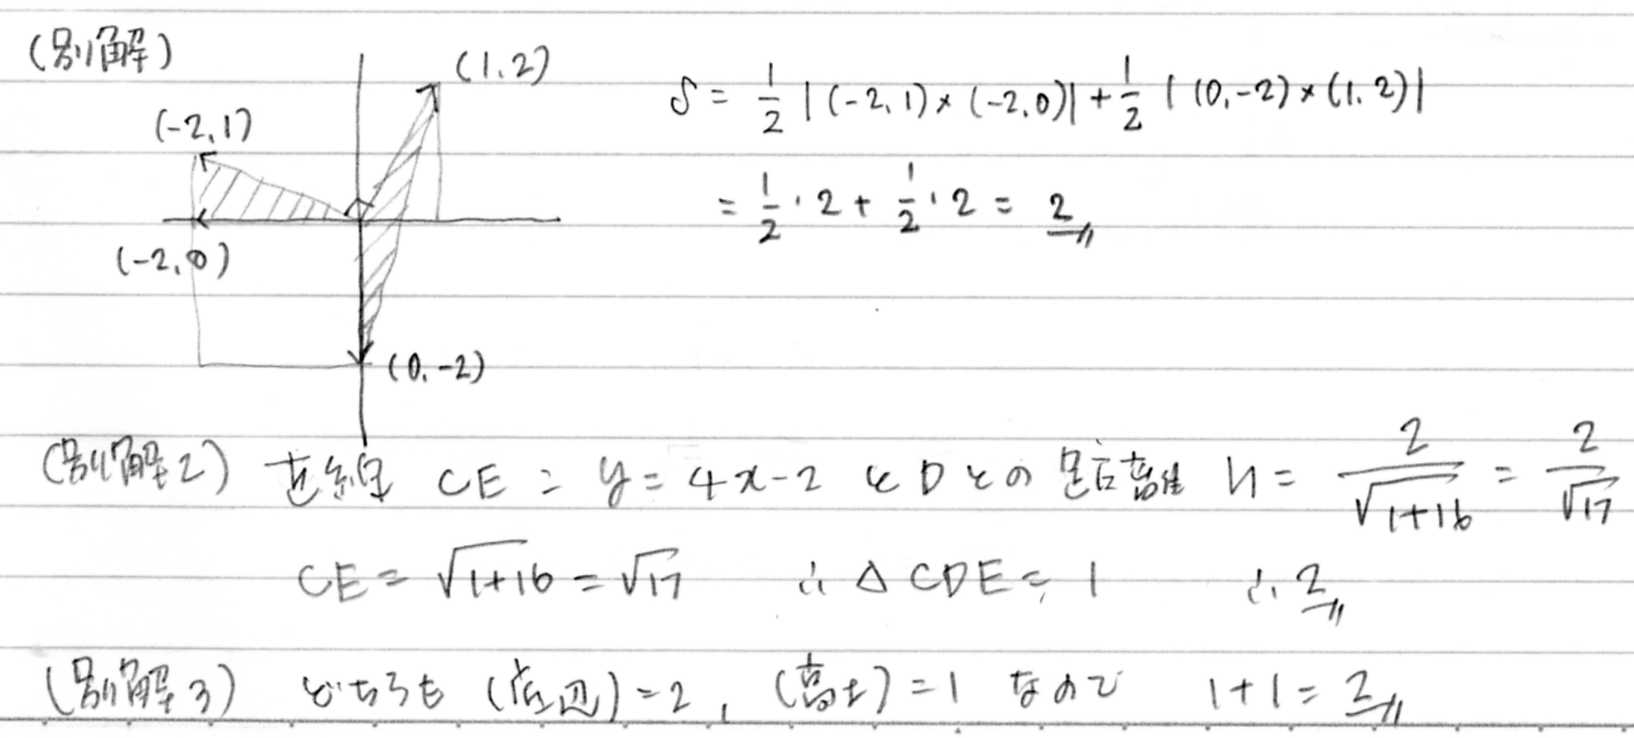 (別解)
(1,2)
(-2,1)
(-2,0)
(0,-2)
S = 1/2 |(-2,1)×(-2,0)| + 1/2 |(0,-2)×(1,2)|
= 1/2・2 + 1/2・2 = 2
(別解2) 直線 CE : y = 4x-2 とDとの距離 h = 2/√1+16 = 2/√17
CE = √1+16 = √17 ∴ △CDE = 1 ∴ 2
(別解3) どちらも (底辺)=2, (高さ)=1 なので 1+1 = 2